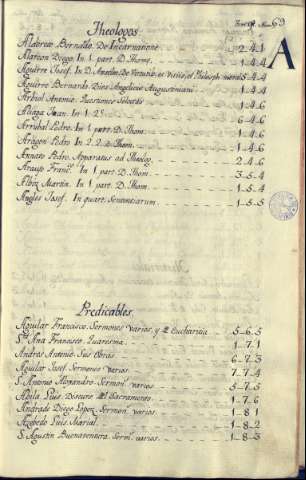 63
A
Theologos
Alderete Bernardo. De Incarnatione 2-4-1
Alarcon Diego. In 1 part. D. Thome 1-4-4
Aguirre Josef. In D. Anselm. De Virtutib. et Vitiis, et Philosoph. moral. 1-5-4
Aguirre Bernardo. Dies Angelicus Augustiniani 1-4-4
Arbiol Antonio. Questiones Selectas 1-4-6
Aliaga Juan. In 1. 2e 6-4-6
Arrubal Pedro. In 1 part. D. Thom. 1-4-6
Aragon Pedro. In 2. 2. D. Thom. 1-4-6
Annato Pedro. Apparatus ad Theolog. 2-4-6
Araujo Francco. In 1 part. D. Thom. 3-5-4
Albiz Martin. In 1 part. D. Thom. 1-5-4
Angles Josef. In quart. Sententiarum 1-5-5
Predicables
Aguilar Francisco. Sermones varios, y de Eucharistia 5-6-5
Sta Ana Francisco. Quaresma 1-7-1
Andres Antonio. Sus Obras 6-7-3
Aguilar Josef. Sermones varios 7-7-4
S. Antonio Alejandro. Sermon. varios 5-7-5
Avila Luis. Discurs. del Sacramento 1-7-6
Andrade Diego Lopez. Sermon. varios 1-8-1
Azevedo Luis. Marial 1-8-2
S. Agustin Buenaventura. Serm. varios 1-8-3